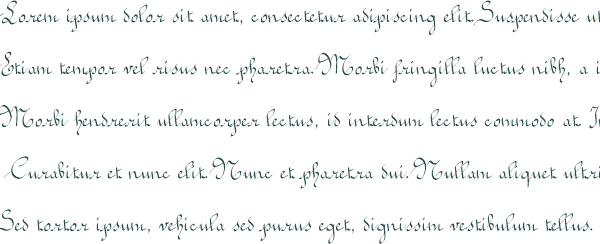 Lorem ipsum dolor sit amet, consectetur adipiscing elit. Suspendisse
Etiam tempor vel risus nec pharetra. Morbi fringilla luctus nibh, a
Morbi hendrerit ullamcorper lectus, id interdum lectus commodo at.
Curabitur et nunc elit. Nunc et pharetra dui. Nullam aliquet
Sed tortor ipsum, vehicula sed purus eget, dignissim vestibulum tellus.